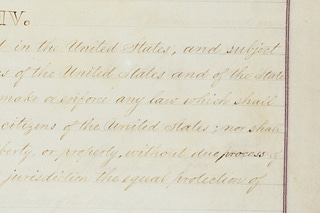 IV.
in the United States, and subject
of the United States and of the State
make or enforce any law which shall
citizens of the United States; nor shall
or property, without due process of
jurisdiction the equal protection of